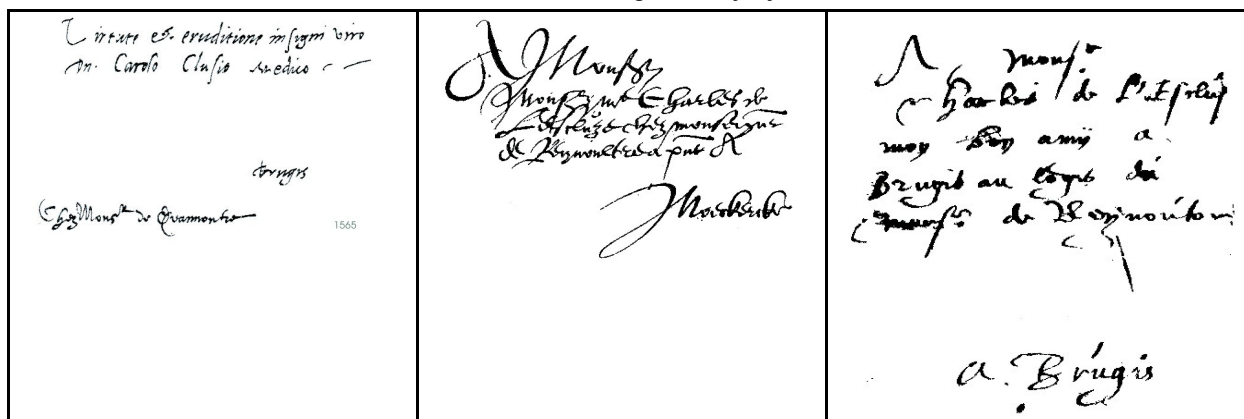 Virtute et eruditione insigni viro
Dn. Carolo Clusio Medico
Brugis
Chez Monsr de
1565
A Monsr
Monsr Mr Charles de
Lescluze chez monseignr
de A
Moerkercke
A monsr
Charles de L'Escluse
mon bon amij a
Brugis au logis du
monsr de
a. Brugis